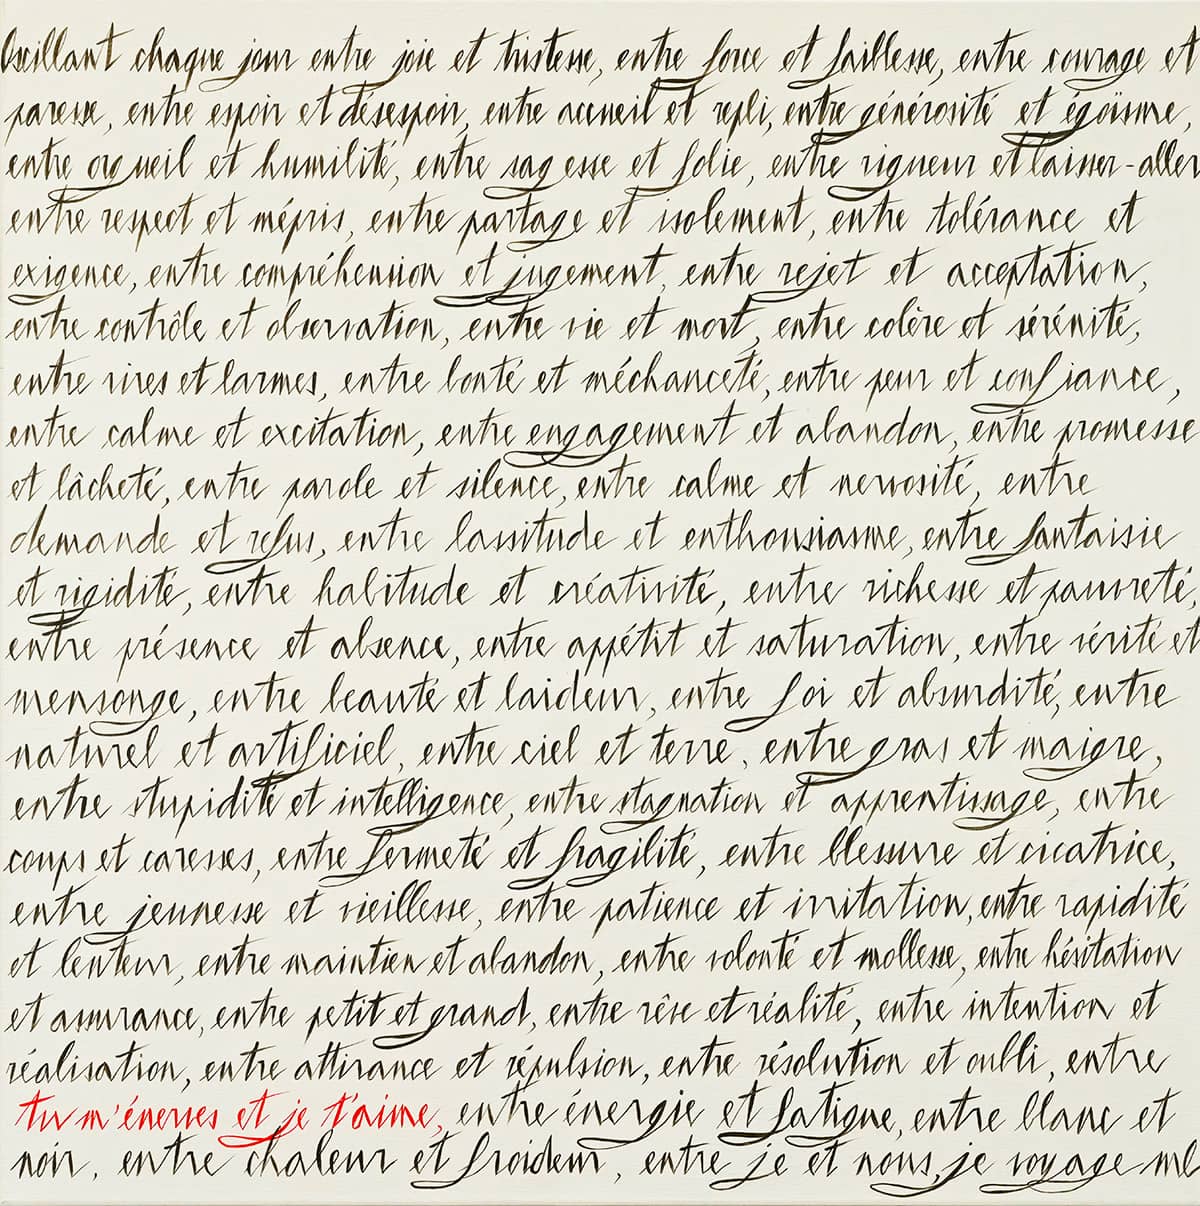 Oscillant chaque jour entre joie et tristesse, entre force et faiblesse, entre courage et
paresse, entre espoir et désespoir, entre accueil et repli, entre générosité et égoïsme,
entre orgueil et humilité, entre sagesse et folie, entre rigueur et laisser-aller
entre respect et mépris, entre partage et isolement, entre tolérance et
exigence, entre compréhension et jugement, entre rejet et acceptation,
entre contrôle et observation, entre vie et mort, entre colère et sérénité,
entre rires et larmes, entre bonté et méchanceté, entre peur et confiance,
entre calme et excitation, entre engagement et abandon, entre promesse
et lâcheté, entre parole et silence, entre calme et nervosité, entre
demande et refus, entre lassitude et enthousiasme, entre fantaisie
et rigidité, entre habitude et créativité, entre richesse et pauvreté,
entre présence et absence, entre appétit et saturation, entre vérité et
mensonge, entre beauté et laideur, entre foi et absurdité, entre
naturel et artificiel, entre ciel et terre, entre gras et maigre,
entre stupidité et intelligence, entre stagnation et apprentissage, entre
coups et caresses, entre fermeté et fragilité, entre blessure et cicatrice,
entre jeunesse et vieillesse, entre patience et irritation, entre rapidité
et lenteur, entre maintien et abandon, entre volonté et mollesse, entre hésitation
et assurance, entre petit et grand, entre rêve et réalité, entre intention et
réalisation, entre attirance et répulsion, entre résolution et oubli, entre
tu m'énerves et je t'aime, entre énergie et fatigue, entre blanc et
noir, entre chaleur et froideur, entre je et nous, je voyage me